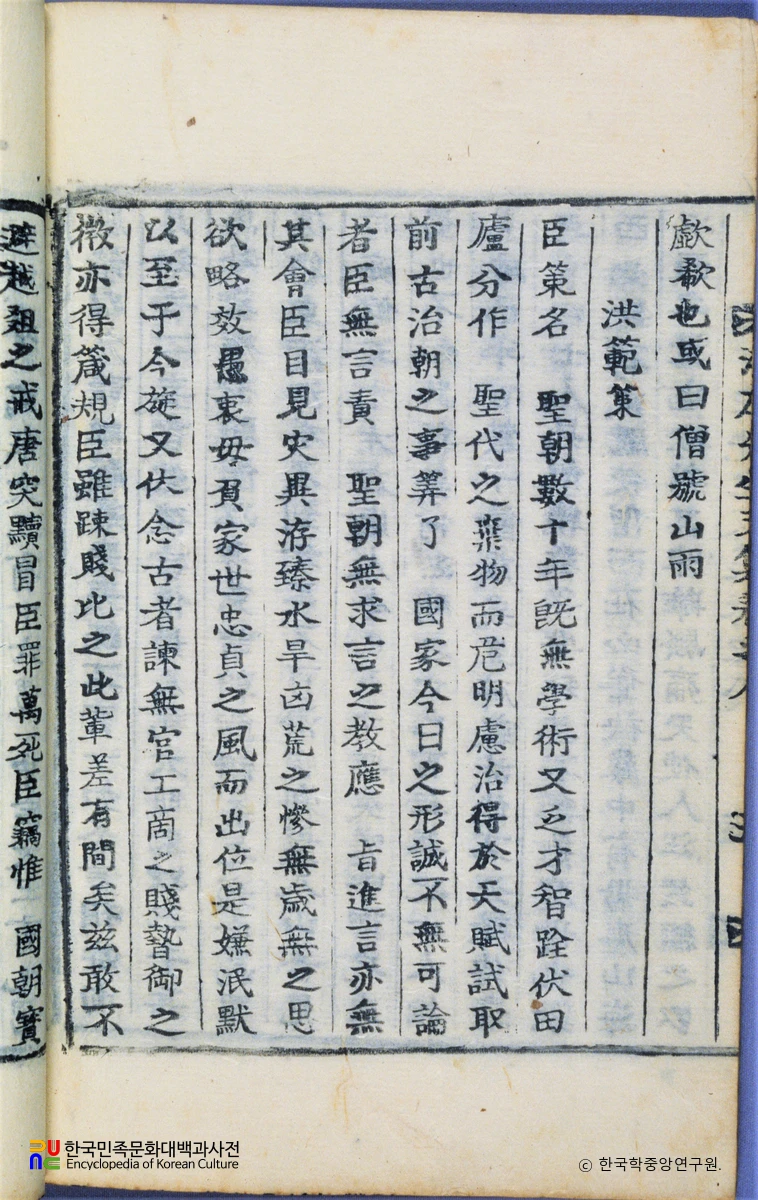 歔欷也或曰僧號山雨
洪範策
臣策名 聖朝數十年旣無學術又乏才智跧伏田
廬分作 聖代之棄物而危明慮治得於天賦試取
前古治朝之事筭了 國家今日之形誠不無可論
者臣無言責 聖朝無求言之敎應 旨進言亦無
其會臣目見灾異洊臻水旱凶荒之慘無歲無之思
欲略效愚衷毋負家世忠貞之風而出位是嫌泯默
以至于今旋又伏念古者諫無官工商之賤暬御之
微亦得箴規臣雖踈賤比之此輩差有間矣玆敢不
避越俎之戒唐突黷冒臣罪萬死臣竊惟 國朝寶
한국민족문화대백과사전
Encyclopedia of Korean Culture
ⓒ 한국학중앙연구원.